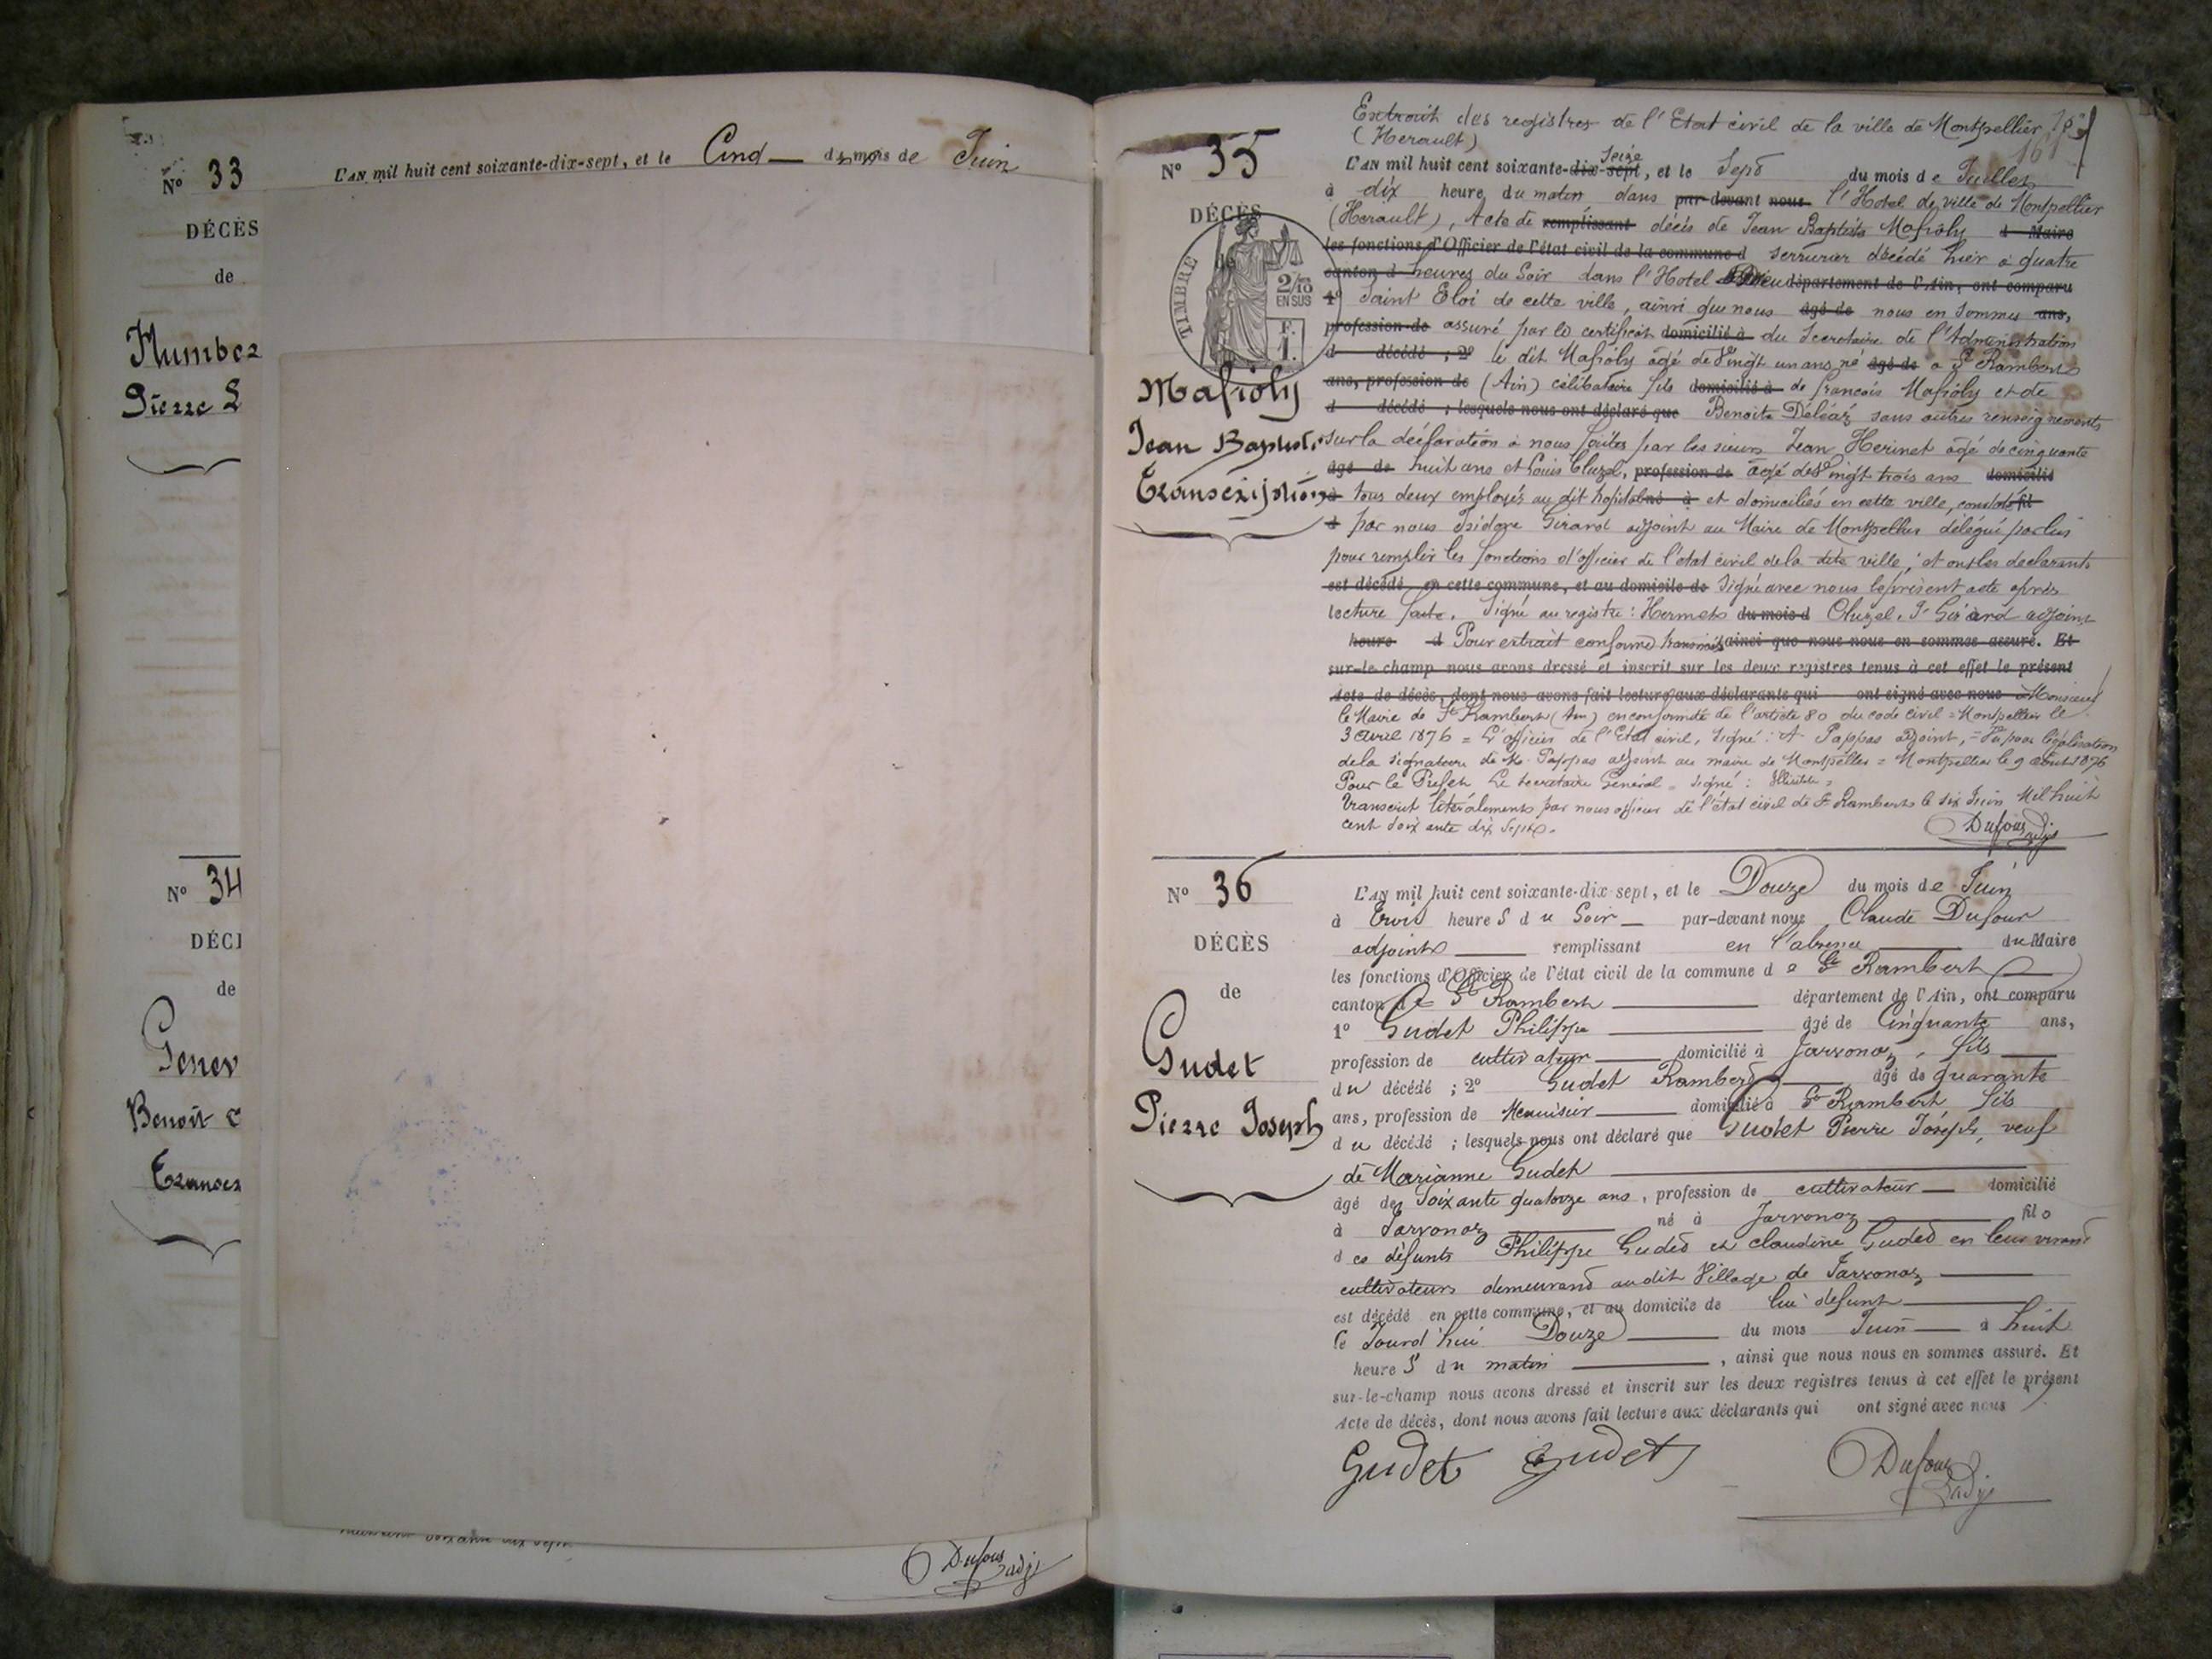 Nº 33
L'AN mil huit cent soixante-dix-sept, et le Cinq du mois de Juin
DÉCÈS
de
Humber
Pierre L
Nº 34
DÉCÈ
de
Genev
Benoît
Transcr
Dufour adj
Extrait des registres de l'Etat civil de la ville de Montpellier
(Herault)
Nº 35
DÉCÈS
de
TIMBRE
2/10
EN SUS
F.
1.
Mafioly
Jean Baptiste
Transcription
L'AN mil huit cent soixante-dix-sept Seize, et le Sept du mois de Juillet
à dix heure du matin dans par-devant nous l'Hotel de ville de Montpellier
(Herault), Acte de remplissant décès de Jean Baptiste Mafioly d Maire
les fonctions d'Officier de l'état civil de la commune d serrurier décédé hier à quatre
canton d heures du Soir dans l'Hotel Dieu département de l'Ain, ont comparu
1º Saint Eloi de cette ville, ainsi que nous âgé de nous en Sommes ans,
profession de assuré par le certificat domicilié à du Secretaire de l'Administration
d décédé ; 2º le dit Mafioly âgé de Vingt un ans né âgé de à St Rambert
ans, profession de (Ain) célibataire fils domicilié à de françois Mafioly et de
d décédé ; lesquels nous ont déclaré que Benoite Déléaz sans autres renseignements
sur la déclaration à nous faites par les sieurs Jean Herinet âgé de cinquante
âgé de huit ans et Louis Cluzel, profession de âgé de Vingt trois ans domicilié
à tous deux employés au dit hopital né à et domiciliés en cette ville, constaté fil
d par nous Isidore Girard adjoint au Maire de Montpellier délégué par lui
pour remplir les fonctions d'officier de l'état civil de la dite ville ; et ont les declarants
est décédé en cette commune, et au domicile de Signé avec nous le présent acte après
lecture faite. Signé au registre : Hermet du mois d Cluzel. I. Girard adjoint
heure d Pour extrait conforme transmis ainsi que nous nous en sommes assuré. Et
sur-le-champ nous avons dressé et inscrit sur les deux registres tenus à cet effet le présent
Acte de décès, dont nous avons fait lecture aux déclarants qui ont signé avec nous à Monsieur
le Maire de St Rambert (Ain) en conformité de l'article 80 du code civil = Montpellier le
3 avril 1876 = L'officier de l'Etat civil, signé : A Pappas adjoint, = Vu pour légalisation
de la signature de Mr Pappas adjoint au maire de Montpellier = Montpellier le 9 août 1876
Pour le Prefet Le Secretaire Général = signé :
Transcrit litéralement par nous officier de l'état civil de St Rambert le six Juin Mil huit
cent soixante dix Sept.
Dufour adj
Nº 36
DÉCÈS
de
Gudet
Pierre Joseph
L'AN mil huit cent soixante-dix-sept, et le Douze du mois de Juin
à Trois heures du Soir par-devant nous Claude Dufour
adjoint remplissant en l'absence du Maire
les fonctions d'Officier de l'état civil de la commune de St Rambert
canton de St Rambert département de l'Ain, ont comparu
1º Gudet Philippe âgé de Cinquante ans,
profession de cultivateur domicilié à Javronoz, fils
du décédé ; 2º Gudet Rambert âgé de quarante
ans, profession de Menuisier domicilié à St Rambert fils
du décédé ; lesquels nous ont déclaré que Gudet Pierre Joseph, veuf
de Marianne Gudet
âgé de Soixante quatorze ans, profession de cultivateur domicilié
à Javronoz né à Javronoz fils
des défunts Philippe Gudet et claudine Gudet en leur vivant
cultivateurs demeurant audit Village de Javronoz
est décédé en cette commune, et au domicile de lui défunt
le Jourd'hui Douze du mois Juin à huit
heures du matin , ainsi que nous nous en sommes assuré. Et
sur-le-champ nous avons dressé et inscrit sur les deux registres tenus à cet effet le présent
Acte de décès, dont nous avons fait lecture aux déclarants qui ont signé avec nous
Gudet Gudet Dufour adj